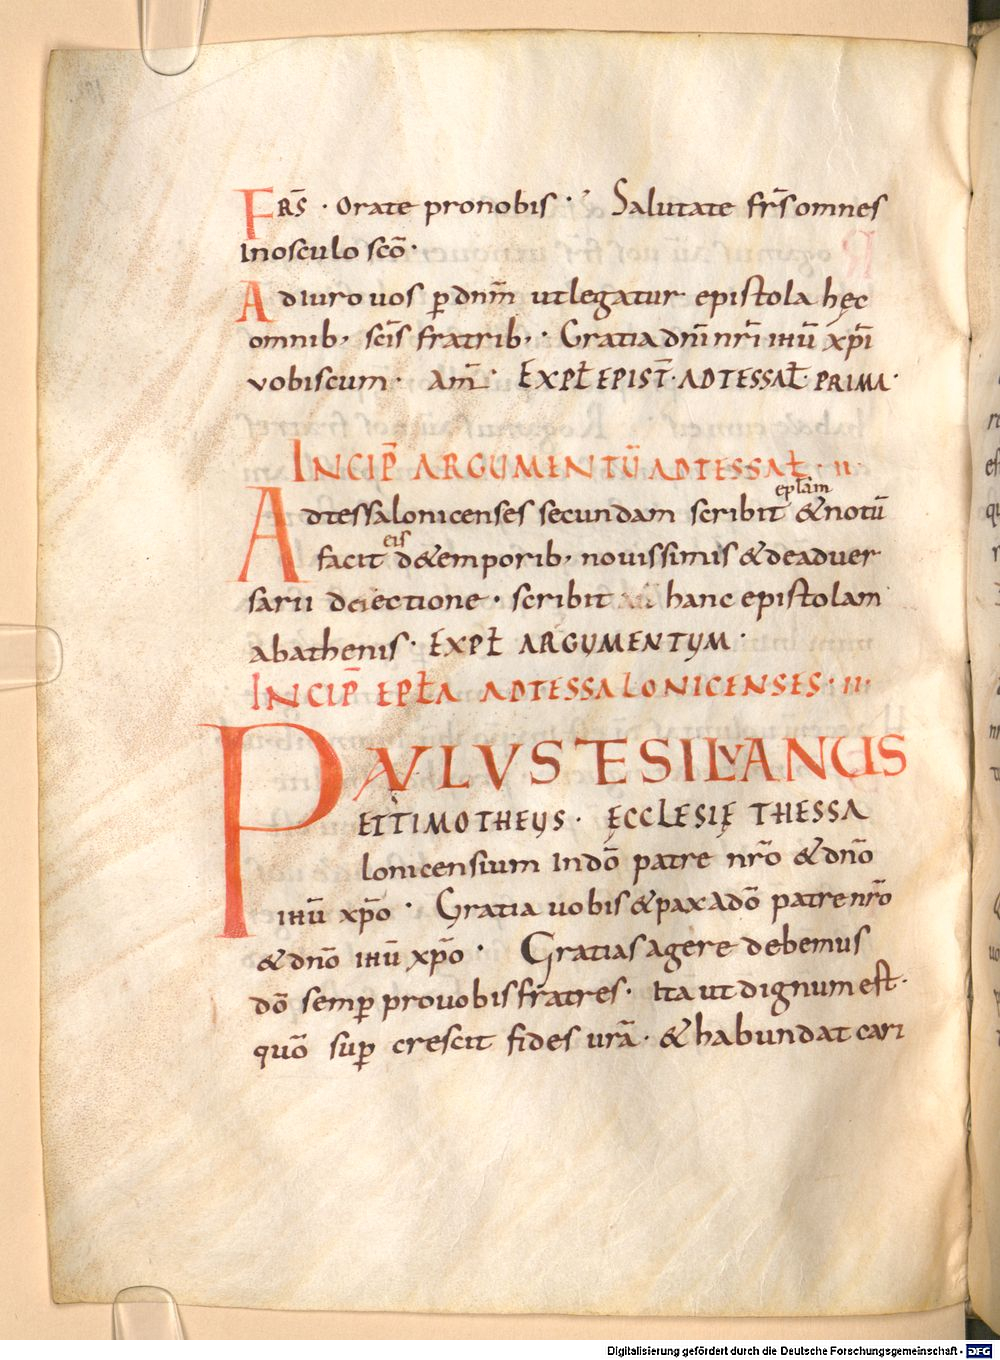 FRS̄ · Orate pronobis · Salutate fr̄s omnes
Inosculo sc̄o ·
Adiuro uos ꝑdnm̄ utlegatur epistola hęc
omnib; sc̄is fratrib; · Gratia dn̄i nr̄i ihū xp̄i
vobiscum · Am̄ · EXPL̄ EPIST̄ · ADTESSAL̄ · PRIMA ·
INCIP̄ ARGUMENTŪ ADTESSAL̄ · II ·
epl̄am
Adtessalonicenses secundam scribit &notū
eis
facit d&emporib; novissimis & deaduer
sarii deiectione · scribit hanc epistolam
abathenis · EXPL̄ ARGUMENTUM ·
INCIP̄ EPL̄A ADTESSALONICENSES · II ·
PAVLVS ET SILVANUS
ET TIMOTHEUS · ĘCCLESIĘ THESSA
lonicensium Indō patre nr̄o & dn̄o
ihū xp̄o · Gratia uobis & pax adō patre nr̄o
& dn̄o ihū xp̄o · Gratias agere debemus
dō semꝑ prouobis fratres · Ita ut dignum est ·
quō suꝑ crescit fides ur̄a · & habundat cari
Digitalisierung gefördert durch die Deutsche Forschungsgemeinschaft - DFG